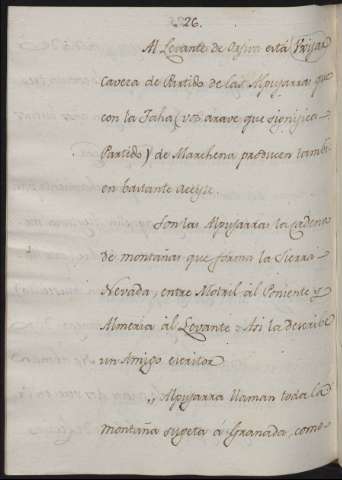 26.
Al Levante de Orgiva está Uxijar
Caveza de Partido de las Alpujarras que
con la Taha (voz arave que significa
Partido) de Marchena producen tambi
en bastante aceyte.
Son las Alpujarras la cadena
de montañas que forma la Sierra
Nevada, entre Motril al Poniente y
Almeria al Levante. Asi la describe
un Amigo escritor
,, Alpujarra llaman toda la
montaña sugeta á Granada, como